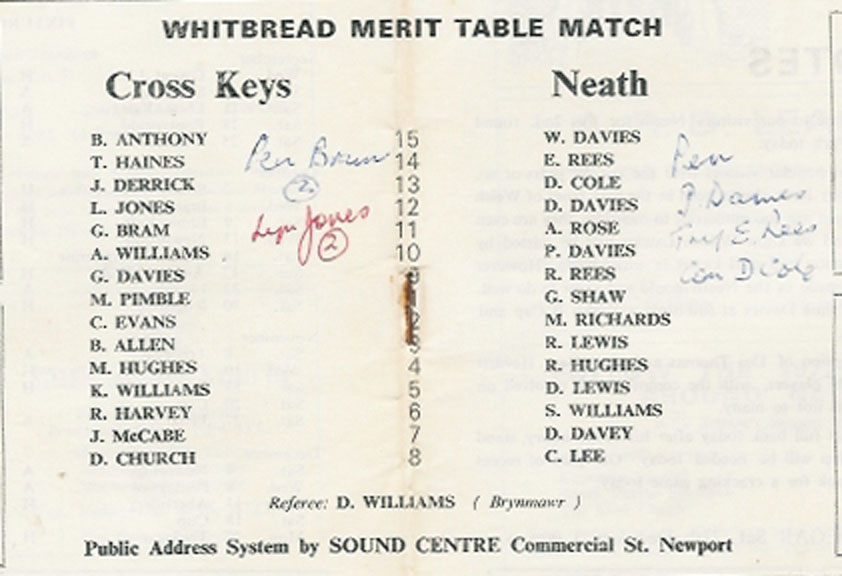 WHITBREAD MERIT TABLE MATCH
Cross Keys Neath
B. ANTHONY 15 W. DAVIES
T. HAINES Pen 14 E. REES Pen
J. DERRICK (2) 13 D. COLE
L. JONES 12 D. DAVIES
G. BRAM Lyn Jones (2) 11 A. ROSE E Rees
A. WILLIAMS 10 P. DAVIES
G. DAVIES 9 R. REES D Cole
M. PIMBLE G. SHAW
C. EVANS 2 M. RICHARDS
B. ALLEN 3 R. LEWIS
M. HUGHES 4 R. HUGHES
K. WILLIAMS 5 D. LEWIS
R. HARVEY 6 S. WILLIAMS
J. McCABE 7 D. DAVEY
D. CHURCH 8 C. LEE
Referee: D. WILLIAMS ( Brynmawr )
Public Address System by SOUND CENTRE Commercial St. Newport